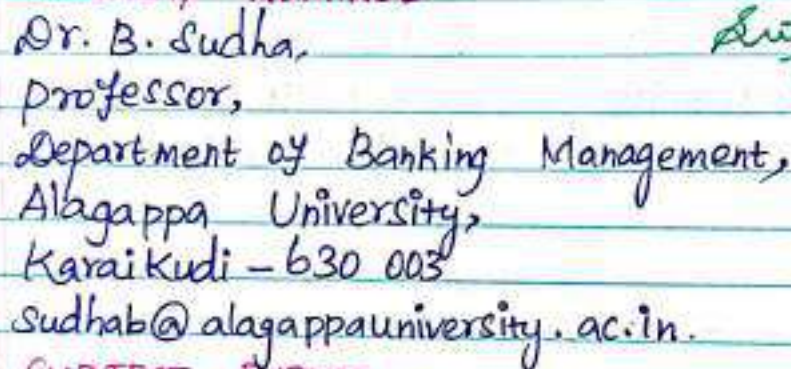 Dr. B. Sudha,
professor,
Department of Banking Management,
Alagappa University,
Karaikudi - 630 003
sudhab@alagappauniversity.ac.in.